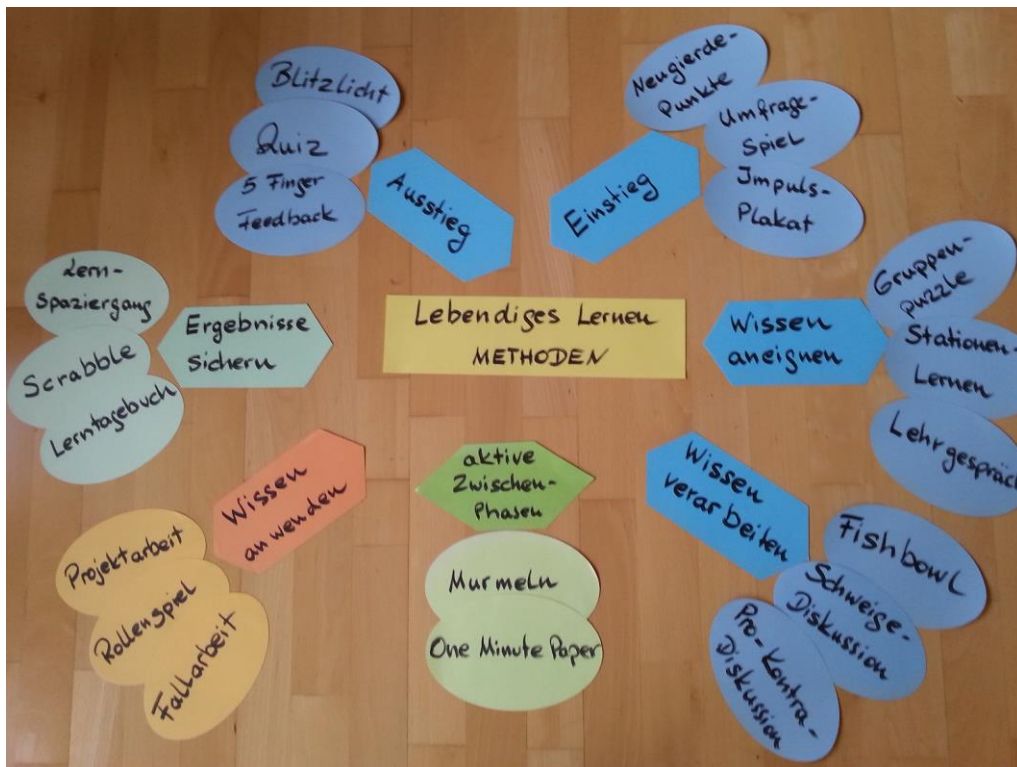 Lebendiges Lernen
METHODEN
Einstieg
Neugierde-
Punkte
Umfrage-
Spiel
Impuls-
Plakat
Wissen
aneignen
Gruppen-
puzzle
Stationen-
Lernen
Lehrgespräch
Wissen
verarbeiten
Fishbowl
Schweige-
Diskussion
Pro-Kontra-
Diskussion
aktive
Zwischen-
Phasen
Murmeln
One Minute Paper
Wissen
anwenden
Projektarbeit
Rollenspiel
Fallarbeit
Ergebnisse
Sichern
Lern-
Spaziergang
Scrabble
Lerntagebuch
Ausstieg
Blitzlicht
Quiz
5 Finger
Feedback